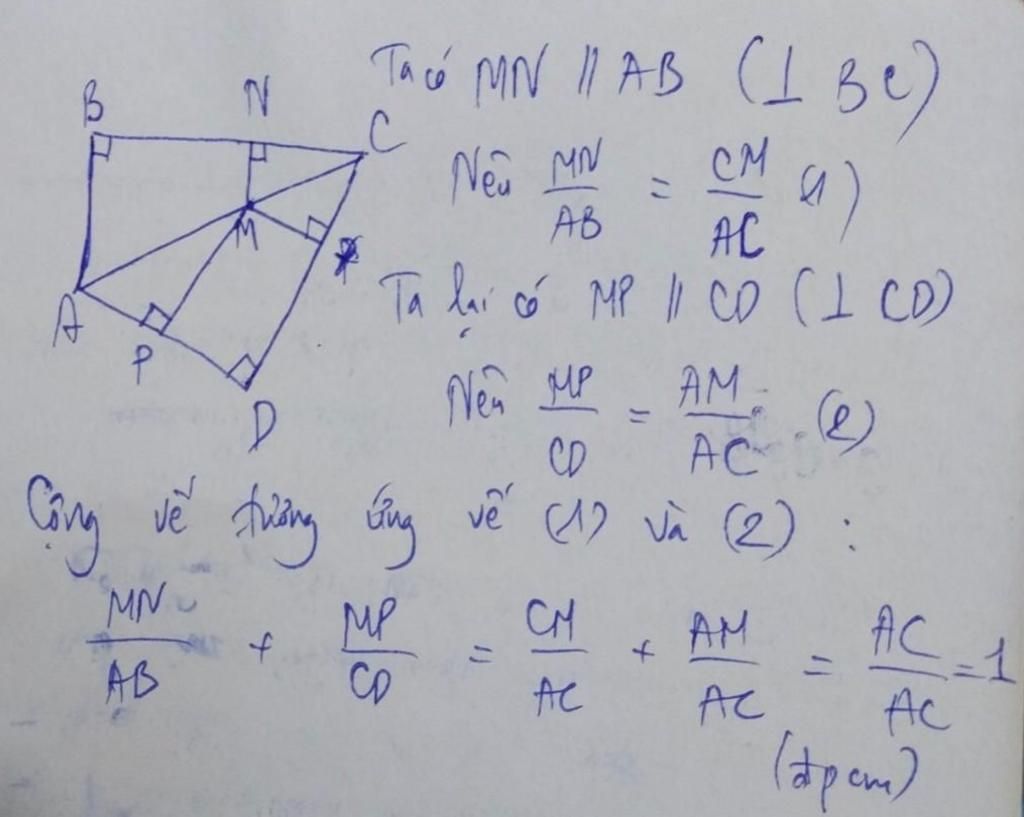 B N C
M
A P D
Ta có MN // AB (⊥ BC)
Nên MN/AB = CM/AC (1)
Ta lại có MP // CD (⊥ CD)
Nên MP/CD = AM/AC (2)
Cộng vế tương ứng vế (1) và (2) :
MN/AB + MP/CD = CM/AC + AM/AC = AC/AC = 1
(đpcm)